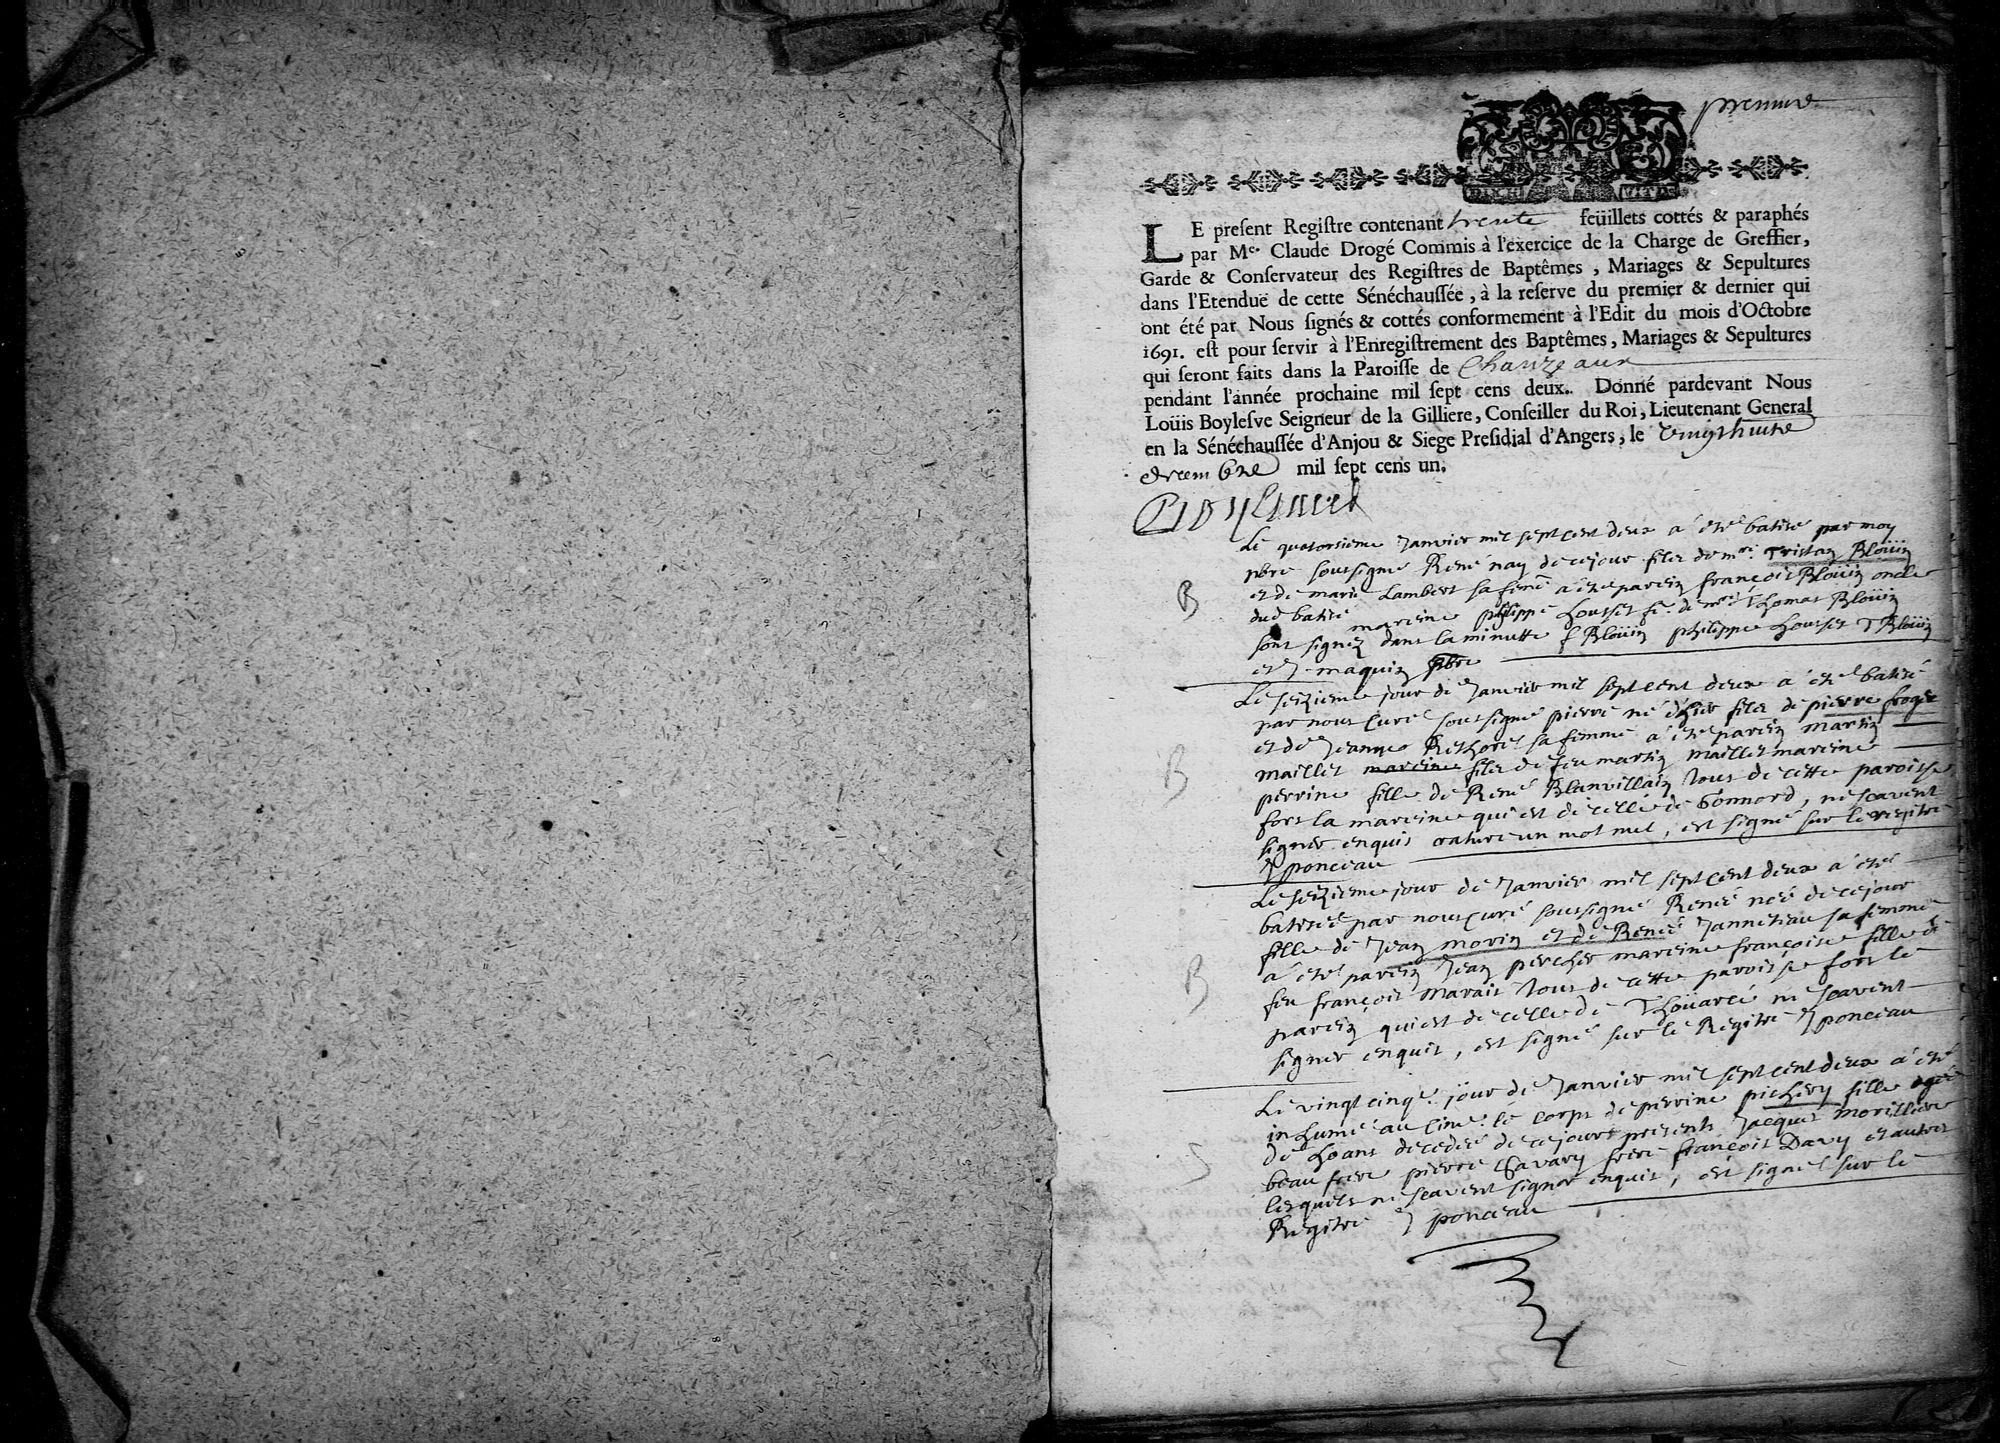 premier
LE present Registre contenant trente feüillets cottés & paraphés
par Me. Claude Drogé Commis à l'exercice de la Charge de Greffier,
Garde & Conservateur des Registres de Baptêmes, Mariages & Sepultures
dans l'Etenduë de cette Sénéchaussée, à la reserve du premier & dernier qui
ont été par Nous signés & cottés conformement à l'Edit du mois d'Octobre
1691. est pour servir à l'Enregistrement des Baptêmes, Mariages & Sepultures
qui seront faits dans la Paroisse de Chanzeaux
pendant l'année prochaine mil sept cens deux. Donné pardevant Nous
Loüis Boylesve Seigneur de la Gilliere, Conseiller du Roi, Lieutenant General
en la Sénéchaussée d'Anjou & Siege Presidial d'Angers, le vingt huite
decembre mil sept cens un.
Boylesve
Le quatorsieme Janvier mil sept cent deux a été batisé par moy
pbre soussigné René nay de ce jour filz de mre. Tristan Bloüin
B et de marie Lambert sa feme a été parein françois Bloüin oncle
dud batisé mareine philippe Housset fe. de mre. Thomas Bloüin
sont signez dans la minutte f Bloüin philippe Housset T Bloüin
et J. maquin pbre
Le seizieme jour de Janvier mil sept cent deux a été batisé
par nous curé soussigné pierre né d'hier filz de pierre froger
et de Jeanne Rethoré sa femme a été parein martin
B maillet mareine filz de feu martin maillet mareine
perrine fille de René Blanvillain tous de cette paroisse
fors la mareine qui est de celle de Gonnord, ne scavent
signer enquis rature un mot nul, est signé sur le registre
J ponceau
Le seizieme jour de Janvier mil sept cent deux a été
batisée par nous curé soussigné Renée née de ce jour
fille de Jean morin et de Renée Janneteau sa femme
B a été parein Jean percher mareine françoise fille de
feu françois marais tous de cette paroisse fors le
parein qui est de celle de Thoüarcé ne scavent
signer enquis, est signé sur le Registre J ponceau
Le vingt cinqe. jour de Janvier mil sept cent deux a été
inhumé au cime.re le corps de perrine pichery fille agée
de ans decedée de ce jour presents Jacques morilliere
S beau frere pierre Gavary frere françois Davy et autres
lesquels ne scavent signer enquis, est signé sur le
Registre J ponceau